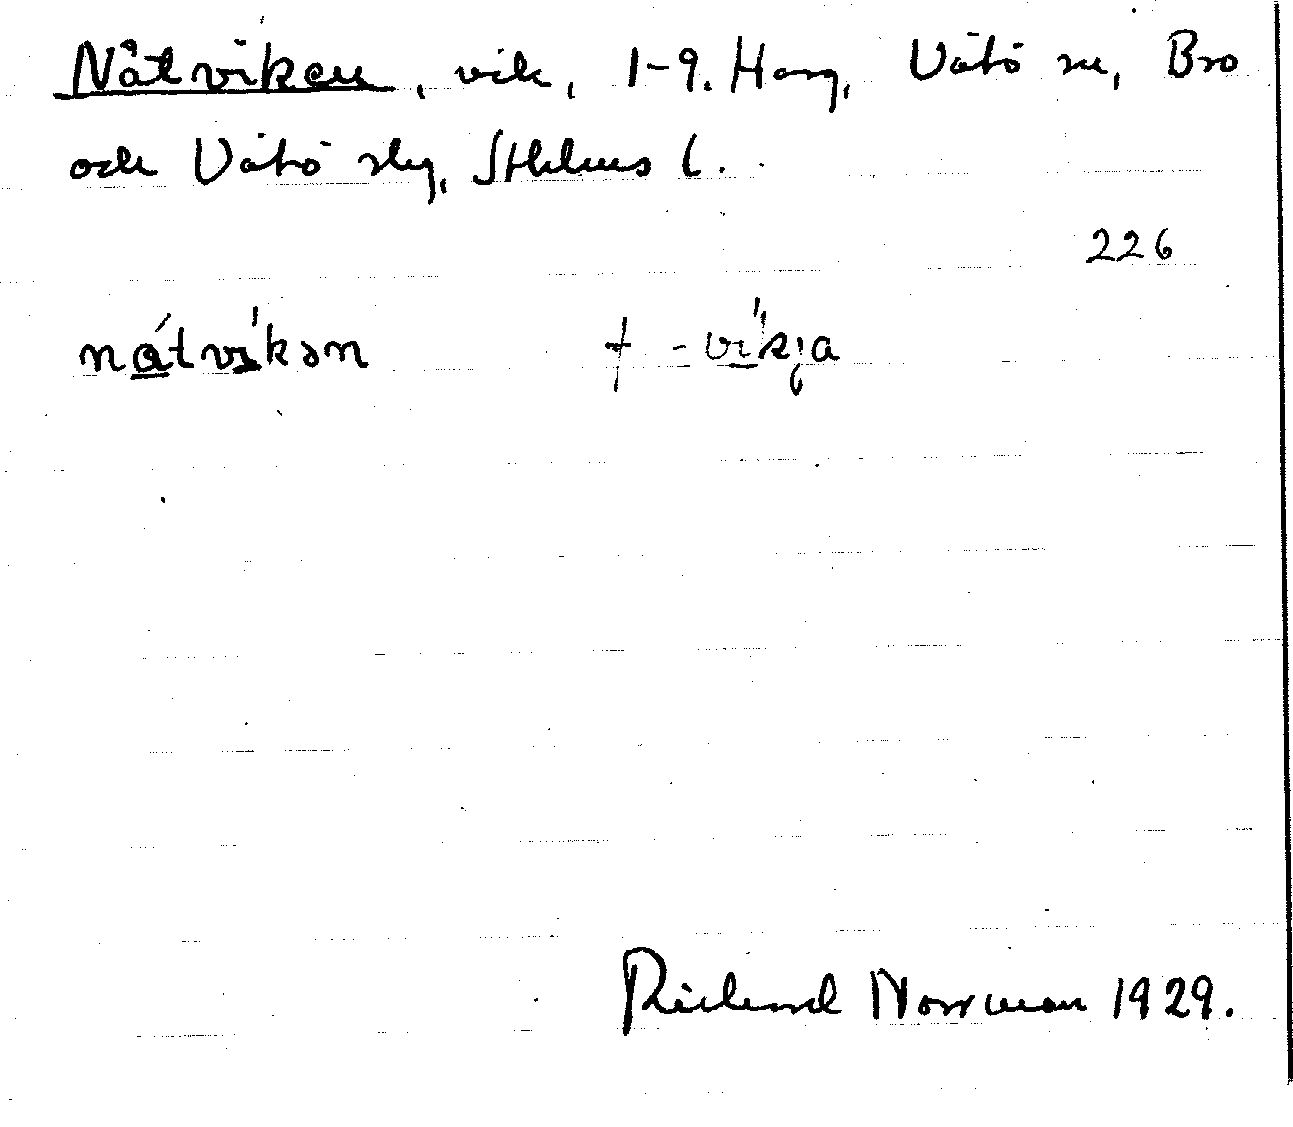 Nåtviken, vik, 1-9. Harg, Vätö sn, Bro
och Vätö slg, Sthlms l.
226
nátvíkən † -víkja
Rickard Norrman 1929.